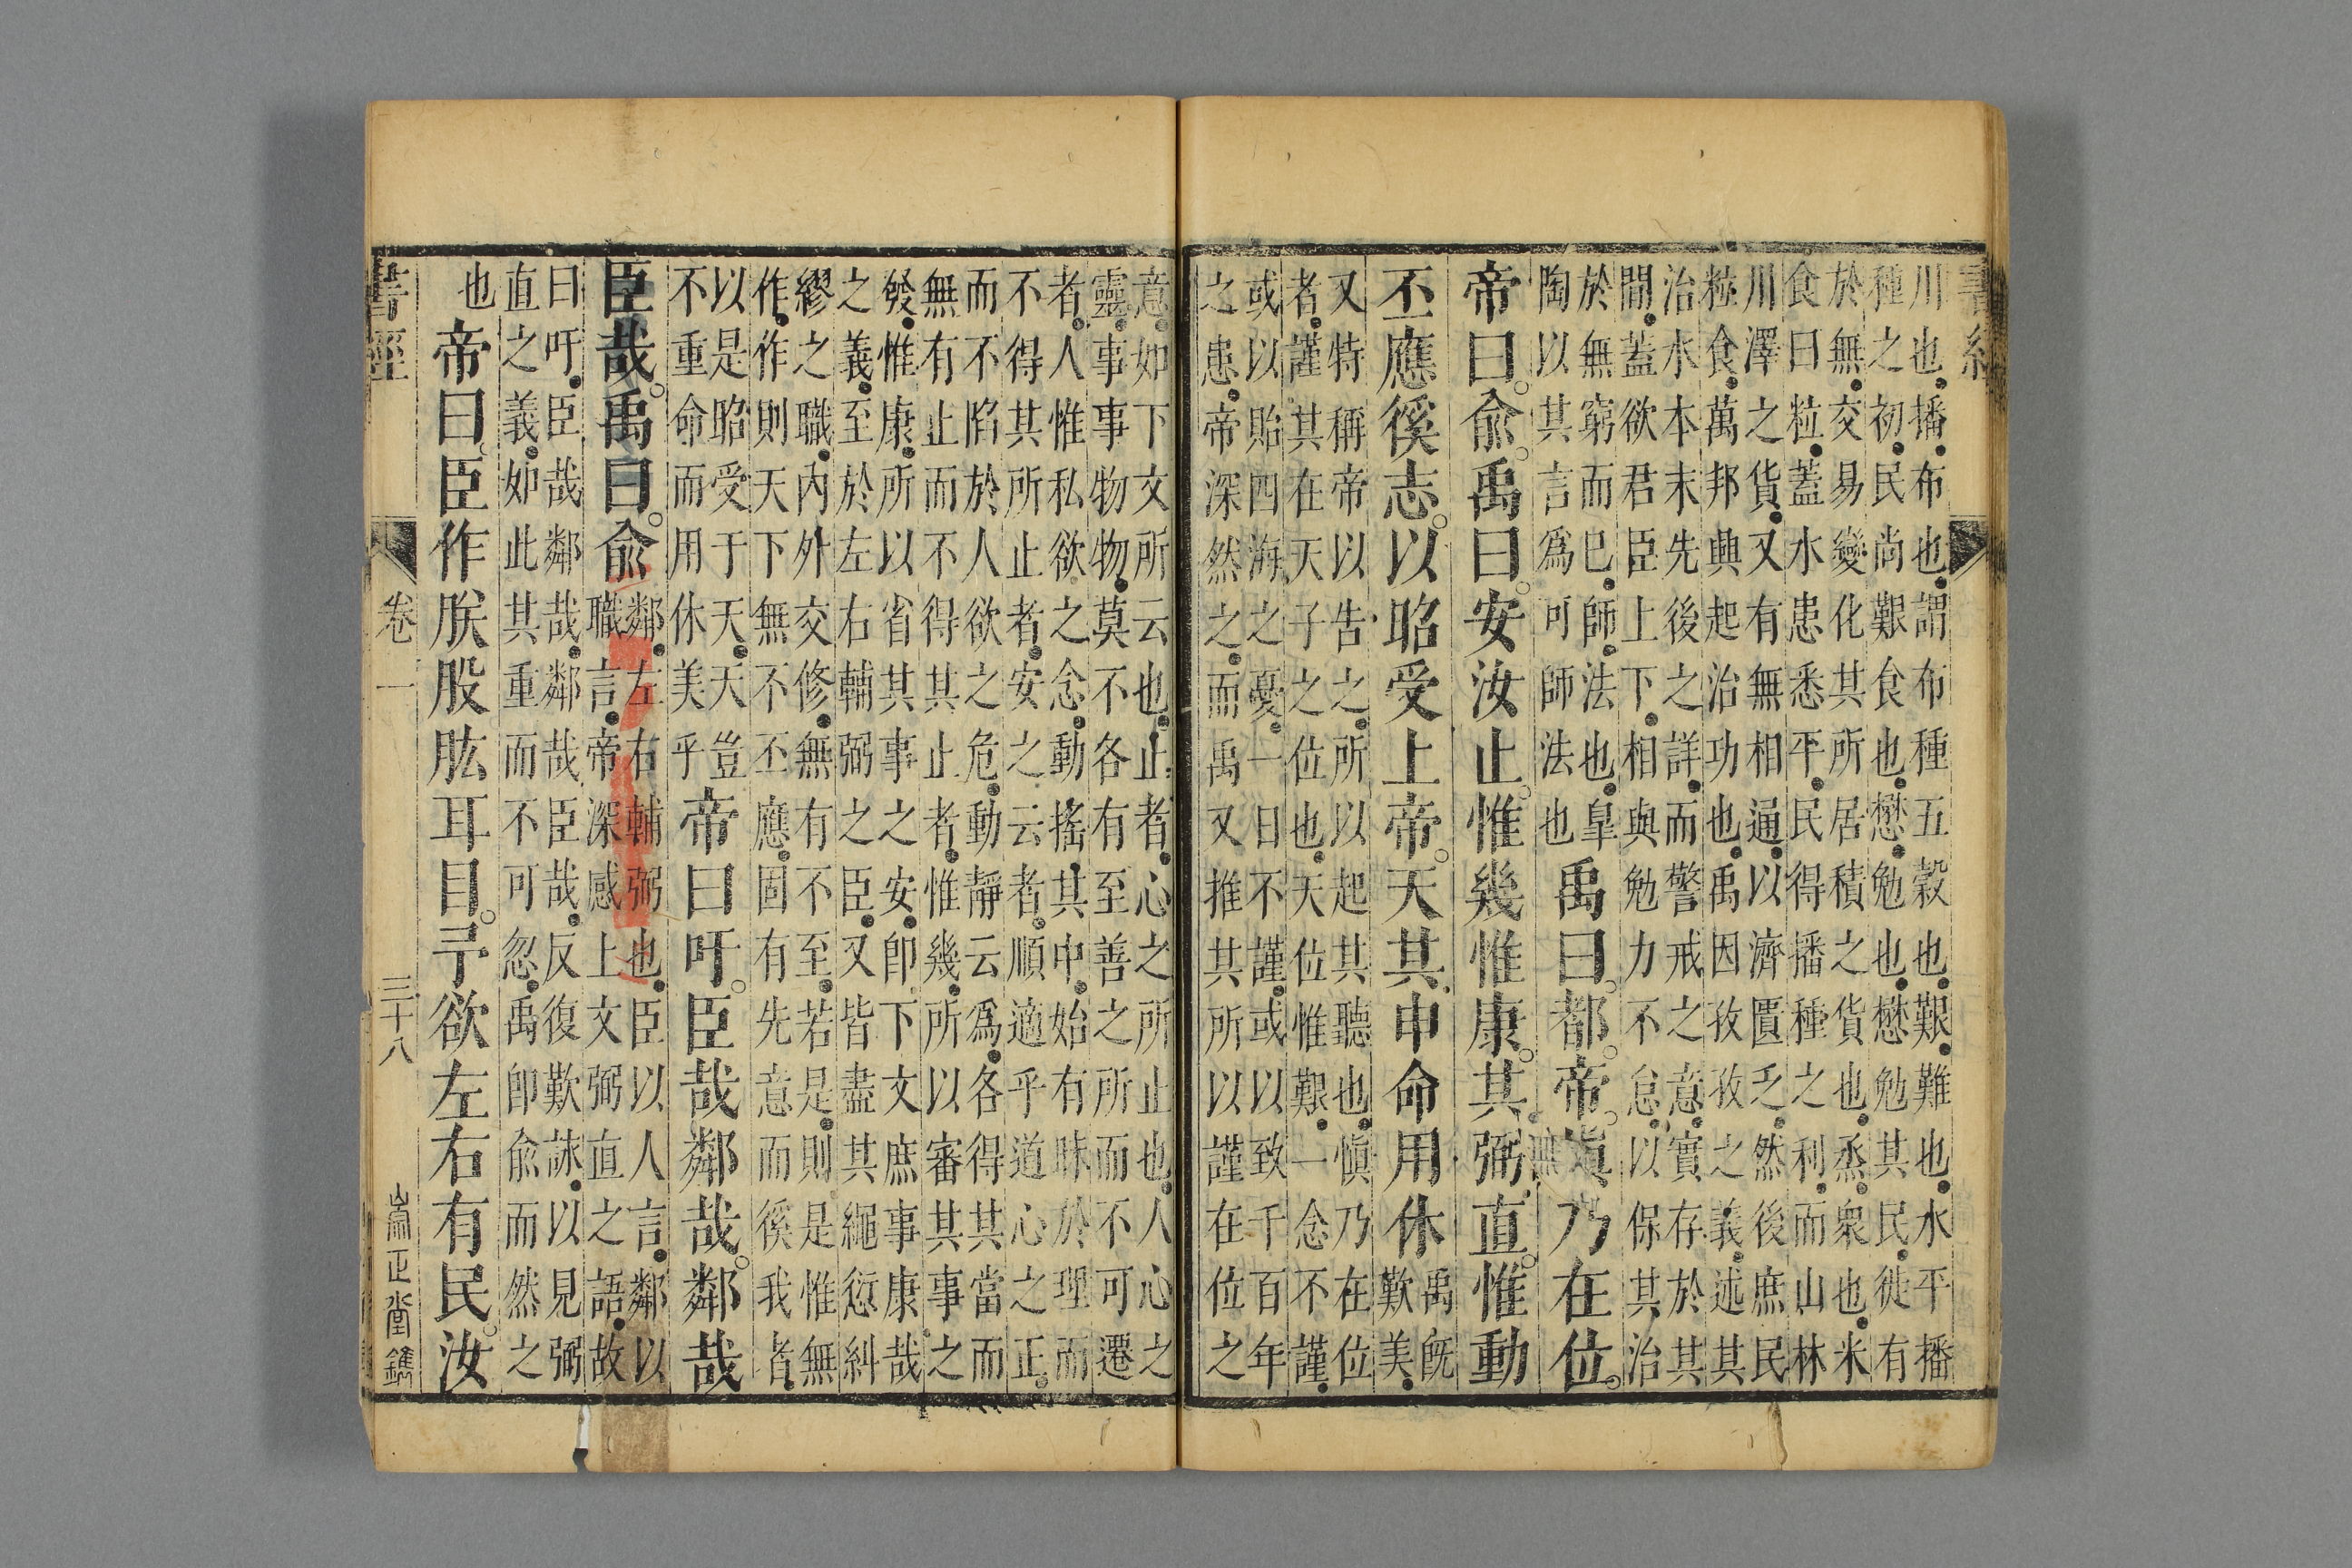 書經
川也播布也謂布種五穀也艱難也水平播
種之初民尚艱食也懋勉也懋勉其民徙有
於無交易變化其所居積之貨也烝衆也米
食曰粒蓋水患悉平民得播種之利而山林
川澤之貨又有無相通以濟匱乏然後庶民
粒食萬邦興起治功也禹因孜孜之義述其
治水本末先後之詳而警戒之意實存於其
間蓋欲君臣上下相與勉力不怠以保其治
於無窮而已師法也皐
陶以其言爲可師法也
禹曰。都。帝。慎乃在位。
帝曰。俞。禹曰。安汝止。惟幾惟康。其弼直。惟動
丕應徯志。以昭受上帝。天其申命用休
禹旣
歎美
又特稱帝以告之所以起其聽也愼乃在位
者謹其在天子之位也天位惟艱一念不謹
或以貽四海之憂一日不謹或以致千百年
之患帝深然之而禹又推其所以謹在位之
意如下文所云也止者心之所止也人心之
靈事事物物莫不各有至善之所而不可遷
者人惟私欲之念動搖其中始有昧於理而
不得其所止者安之云者順適乎道心之正
而不陷於人欲之危動靜云爲各得其當而
無有止而不得其止者惟幾所以審其事之
發惟康所以省其事之安卽下文庶事康哉
之義至於左右輔弼之臣又皆盡其繩愆糾
繆之職內外交修無有不至若是則是惟無
作作則天下無不丕應固有先意而徯我者
以是昭受于天天豈
不重命而用休美乎
帝曰吁。臣哉鄰哉。鄰哉
臣哉。禹曰。俞
鄰左右輔弼也臣以人言鄰以
職言帝深感上文弼直之語故
曰吁臣哉鄰哉鄰哉臣哉反復歎詠以見弼
直之義如此其重而不可忽禹卽俞而然之
也
帝曰。臣作朕股肱耳目。予欲左右有民。汝
書經 卷一 三十八 崇正堂鐫